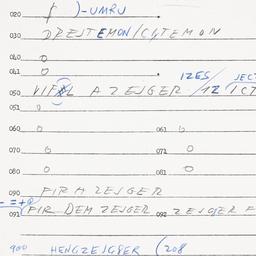 020 )-UMRU
030 DREJTEMON/CGTEMON
040 0
041 0
IZES/JEC
050 A ZEJGER/IZ
051 0
060 0 061 0
070 0 071 0
080 0 081 0
090 FIR A ZEJGER
091 FIR DEM ZEJGER 092 ZEJGER F
900 (208